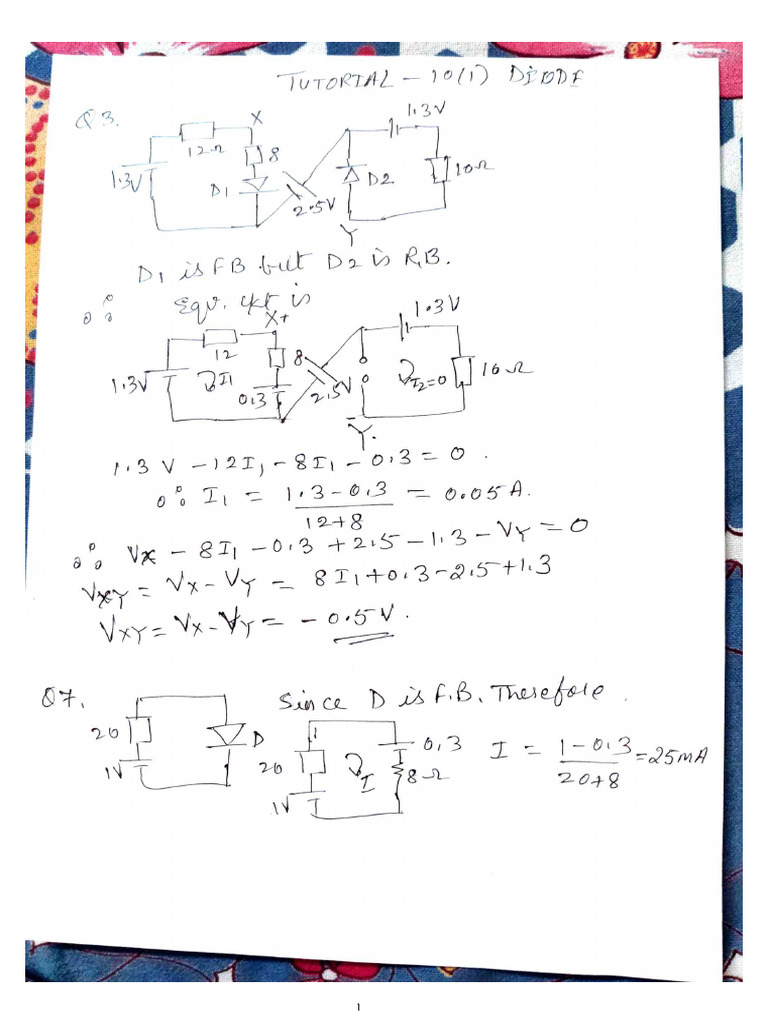 TUTORIAL - 10(1) DIODE
Q3.
X
1.3V
12Ω
8
1.3V
D1
2.5V
D2
10Ω
Y
D1 is FB but D2 is R.B.
∴ Equ. ckt is
X+
1.3V
12
8
1.3V
I1
0.3
2.5V
I2=0
10Ω
Y
1.3V - 12I1 - 8I1 - 0.3 = 0.
∴ I1 = 1.3-0.3 / 12+8 = 0.05A.
∴ Vx - 8I1 - 0.3 + 2.5 - 1.3 - VY = 0
VXY = VX - VY = 8I1 + 0.3 - 2.5 + 1.3
VXY = VX - VY = - 0.5V.
Q7.
Since D is F.B. Therefore.
20
D
1V
20
I
0.3
8Ω
1V
I = 1-0.3 / 20+8 = 25mA
1